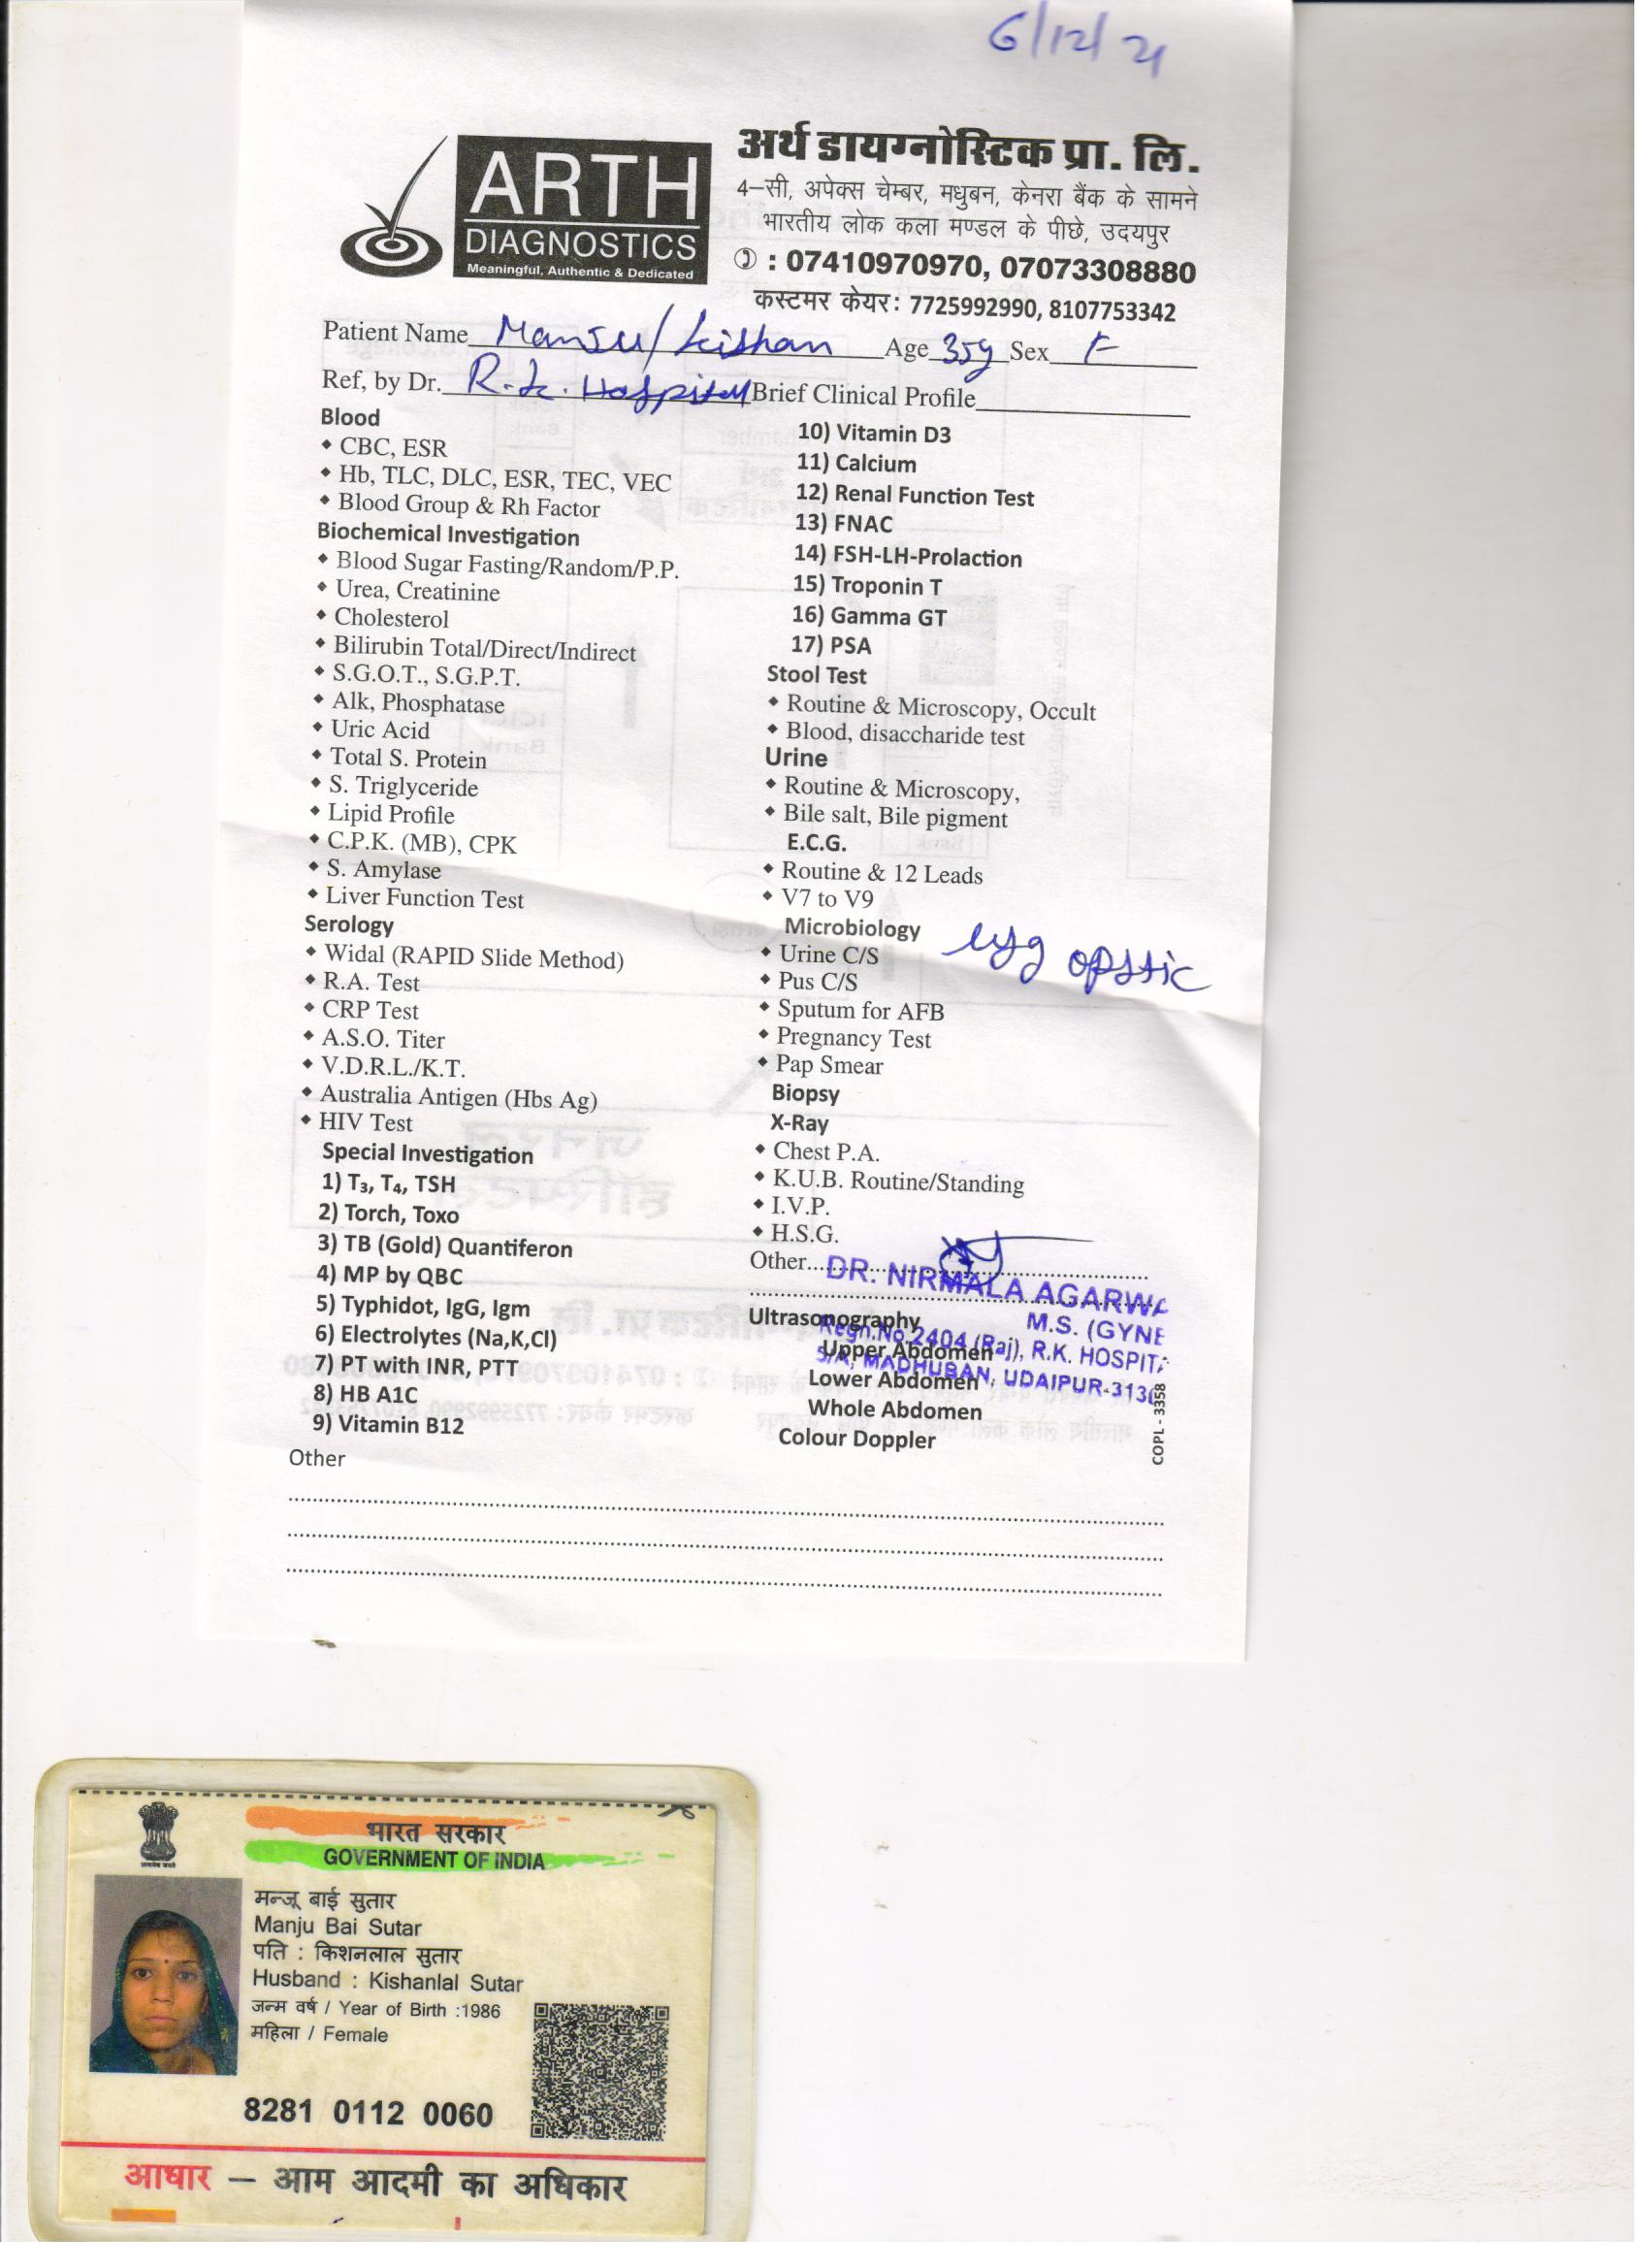 6/12/21
ARTH
DIAGNOSTICS
Meaningful, Authentic & Dedicated
अर्थ डायग्नोस्टिक प्रा. लि.
4–सी, अपेक्स चेम्बर, मधुबन, केनरा बैंक के सामने
भारतीय लोक कला मण्डल के पीछे, उदयपुर
: 07410970970, 07073308880
कस्टमर केयर: 7725992990, 8107753342
Patient Name Manju/Kishan Age 35y Sex F
Ref, by Dr. R.K. Hospital Brief Clinical Profile
Blood
CBC, ESR
Hb, TLC, DLC, ESR, TEC, VEC
Blood Group & Rh Factor
Biochemical Investigation
Blood Sugar Fasting/Random/P.P.
Urea, Creatinine
Cholesterol
Bilirubin Total/Direct/Indirect
S.G.O.T., S.G.P.T.
Alk, Phosphatase
Uric Acid
Total S. Protein
S. Triglyceride
Lipid Profile
C.P.K. (MB), CPK
S. Amylase
Liver Function Test
Serology
Widal (RAPID Slide Method)
R.A. Test
CRP Test
A.S.O. Titer
V.D.R.L./K.T.
Australia Antigen (Hbs Ag)
HIV Test
Special Investigation
1) T₃, T₄, TSH
2) Torch, Toxo
3) TB (Gold) Quantiferon
4) MP by QBC
5) Typhidot, IgG, Igm
6) Electrolytes (Na,K,Cl)
7) PT with INR, PTT
8) HB A1C
9) Vitamin B12
Other
10) Vitamin D3
11) Calcium
12) Renal Function Test
13) FNAC
14) FSH-LH-Prolaction
15) Troponin T
16) Gamma GT
17) PSA
Stool Test
Routine & Microscopy, Occult
Blood, disaccharide test
Urine
Routine & Microscopy,
Bile salt, Bile pigment
E.C.G.
Routine & 12 Leads
V7 to V9
Microbiology
Urine C/S
Pus C/S
Sputum for AFB
Pregnancy Test
Pap Smear
Biopsy
X-Ray
Chest P.A.
K.U.B. Routine/Standing
I.V.P.
H.S.G.
Other
DR. NIRMALA AGARWA
M.S. (GYNE
Regn.No.2404 (Raj), R.K. HOSPITA
5/A, MADHUBAN, UDAIPUR-313
Ultrasonography
Upper Abdomen
Lower Abdomen
Whole Abdomen
Colour Doppler
COPL - 3358
भारत सरकार
GOVERNMENT OF INDIA
मन्जू बाई सुतार
Manju Bai Sutar
पति : किशनलाल सुतार
Husband : Kishanlal Sutar
जन्म वर्ष / Year of Birth :1986
महिला / Female
8281 0112 0060
आधार – आम आदमी का अधिकार